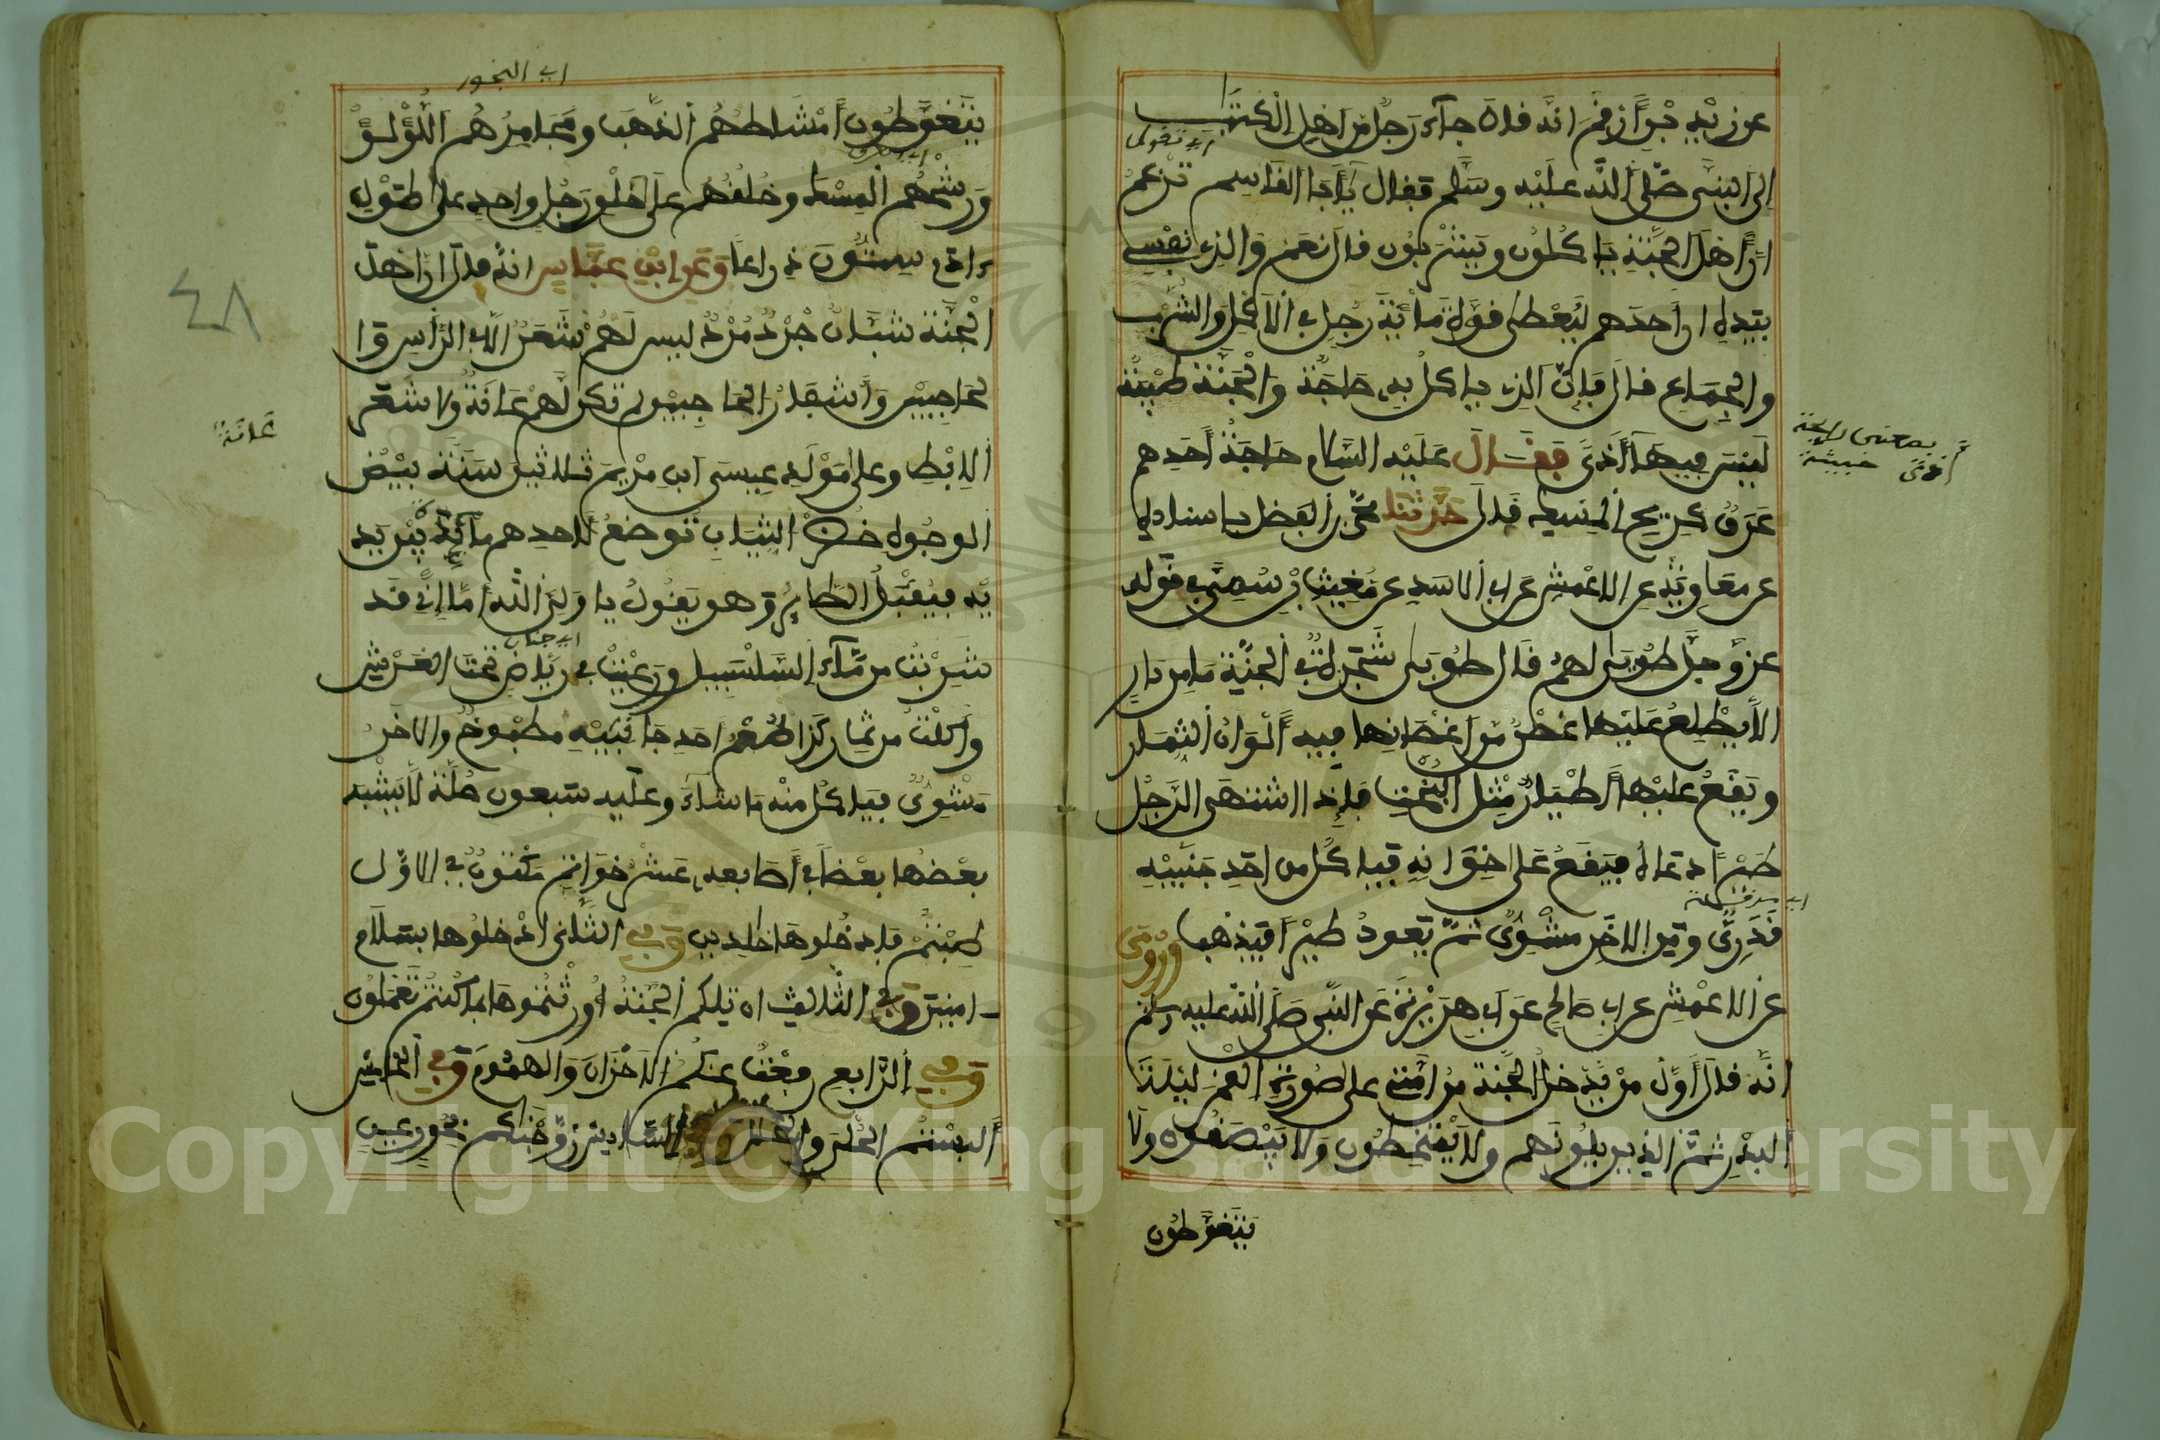 عن زيد بن أرقم انه قال جاء رجل من اهل الكتاب
اي تقول
إلى النبي صلى الله عليه وسلم فقال يا أبا القاسم تزعم
ان أهل الجنة ياكلون ويشربون قال نعم والذي نفسي
بيده ان أحدهم ليعطى قوة مائة رجل في الأكل والشرب
والجماع قال فإن الذي ياكل له حاجة والجنة طيبة
ليس فيها أذى فقال عليه السلام حاجة أحدهم
عرق كريح المسك قال حدثنا محمد بن الفضل باسناده
عن معاوية عن الاعمش عن ابي الاسد عن مغيث بن سمي في قوله
عز وجل طوبى لهم قال طوبى شجرة في الجنة ما من دار
الا يطلع عليها غصن من اغصانها فيه ألوان الثمار
ويقع عليها طيار مثل البخت فاذا اشتهى الرجل
طيرا دعاه فيقع على خوانه فياكل من احد جنبيه
قدري ومن الاخر مشوى ثم يعود طيرا فيذهب وروى
عن الاعمش عن ابي صالح عن ابي هريرة عن النبي صلى الله عليه وسلم
انه قال أول من يدخل الجنة من امتي على صورة القمر ليلة
البدر ثم الذين يلونهم ولا يمتخطون ولا يبصقون ولا
يتغوطون
اي البخور
يتغوطون أمشاطهم الذهب ومجامرهم اللؤلؤ
ورشحهم المسك وخلقهم على خلق رجل واحد على طوله
ءادم ستون ذراعا وعن ابن عباس انه قال ان اهل
الجنة شبان جرد مرد ليس لهم شعر الا في الرأس وا
لحاجبين وأشفار الحاجبين لم تكن لهم عانة ولا شعر
الابط وعلى مولد عيسى ابن مريم ثلاثين سنة بيض
الوجوه خضر الثياب توضع لاحدهم مائدة بين يد
يه فيقبل الطائر وهو يقول يا ولي الله أما إني قد
اي جنان
شربت من ماء السلسبيل ورعيت في رياض تحت العرش
وأكلت من ثمار كذا طعم احد جانبيه مطبوخ والاخر
مشوي فياكل منه ما شاء وعليه سبعون حلة لا يشبه
بعضها بعضا في أصابعه عشر خواتم مكتوب في الاول
طبتم فادخلوها خالدين وفي الثاني ادخلوها بسلام
ءامنين وفي الثالث تلكم الجنة أورثتموها بما كنتم تعملون
وفي الرابع رفعت عنكم الاحزان والهموم وفي الخامس
ألبستم الحلي والحلل السادس زوجناكم بحور عين
بمعنى رايحة
أذى خبيثة
عانة
٤٨
Copyright © King Saud University